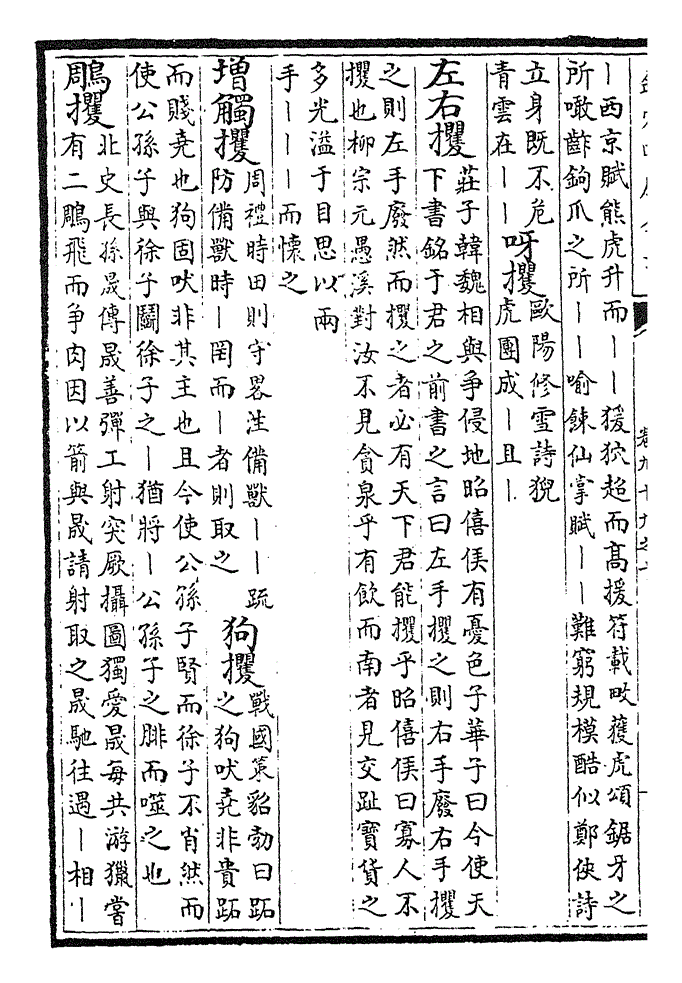 ｜西京賦熊虎升而｜｜猨狖超而高援符載畋獲虎頌鋸牙之
所噉齰鉤爪之所｜｜喻鍊仙掌賦｜｜難窮規模酷似鄭俠詩
立身既不危
青雲在｜｜
呀攫 歐陽修雪詩猊
虎團成｜且｜
左右攫 莊子韓魏相與爭侵地昭僖侯有憂色子華子曰今使天
下書銘于君之前書之言曰左手攫之則右手廢右手攫
之則左手廢然而攫之者必有天下君能攫乎昭僖侯曰寡人不
攫也柳宗元愚溪對汝不見貪泉乎有飲而南者見交趾寶貨之
多光溢于目思以兩
手｜｜｜而懷之
增觸攫 周禮時田則守罟注備獸｜｜疏
防備獸時｜罔而｜者則取之
狗攫 戰國策貂勃曰跖
之狗吠堯非貴跖
而賤堯也狗固吠非其主也且今使公孫子賢而徐子不肖然而
使公孫子與徐子鬭徐子之｜猶將｜公孫子之腓而噬之也
鵰攫 北史長孫晟傳晟善彈工射突厥攝圖獨愛晟每共游獵嘗
有二鵰飛而爭肉因以箭與晟請射取之晟馳往遇｜相｜